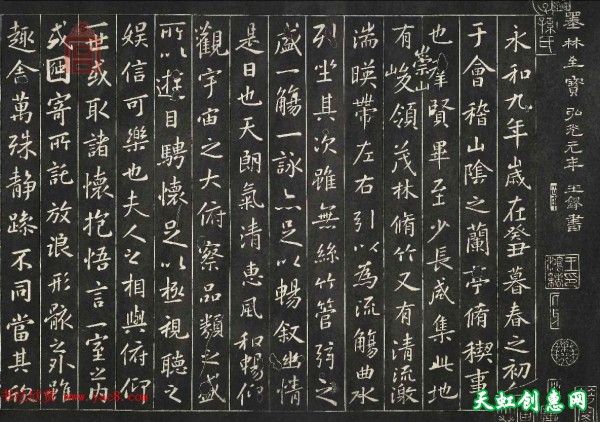 墨林至寶 弘光元年 王鐸書
永和九年歲在癸丑暮春之初會
于會稽山陰之蘭亭脩稧事
也羣賢畢至少長咸集此地
有崇山峻領茂林脩竹又有清流激
湍暎帶左右引以為流觴曲水
列坐其次雖無絲竹管弦之
盛一觴一詠亦足以暢叙幽情
是日也天朗氣清惠風和暢仰
觀宇宙之大俯察品類之盛
所以遊目騁懷足以極視聽之
娛信可樂也夫人之相與俯仰
一世或取諸懷抱悟言一室之內
或因寄所託放浪形骸之外雖
趣舍萬殊靜躁不同當其欣
天虹创意网